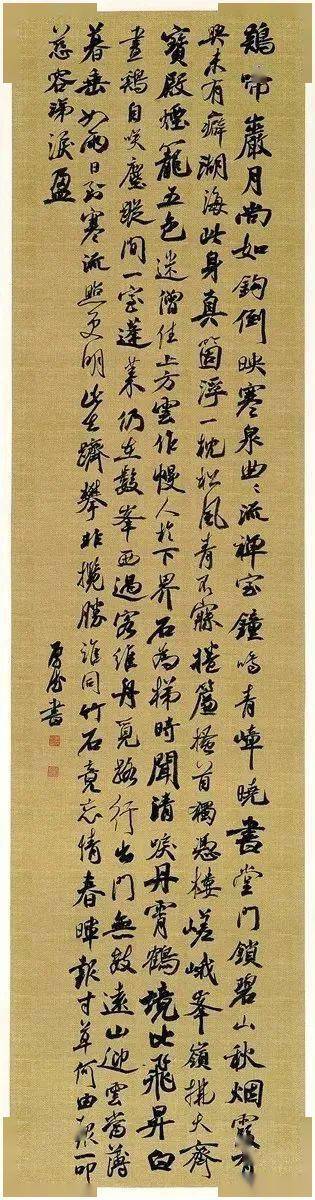 鷄啼巖月尚如鈎倒映寒泉曲々流禪室鐘鳴青嶂曉書堂門鎖碧山秋烟霞有
興未有癖湖海此身真箇浮一枕松風清不寐捲簾搔首獨憑樓嵯峨峯嶺挑天齊
寶殿煙籠五色迷僧住上方雲作幔人於下界石為梯時聞清唳丹霄鶴境比飛昇白
晝鷄自咲塵蹤間一宿蓬萊仍在數峯西過客維舟覓路行出門無數遠山迎雲當薄
暮垂如雨日到寒流照更明此生躋攀非攬勝誰同竹石竟忘情春暉報寸草何由一叩
慈容珠淚盈
書